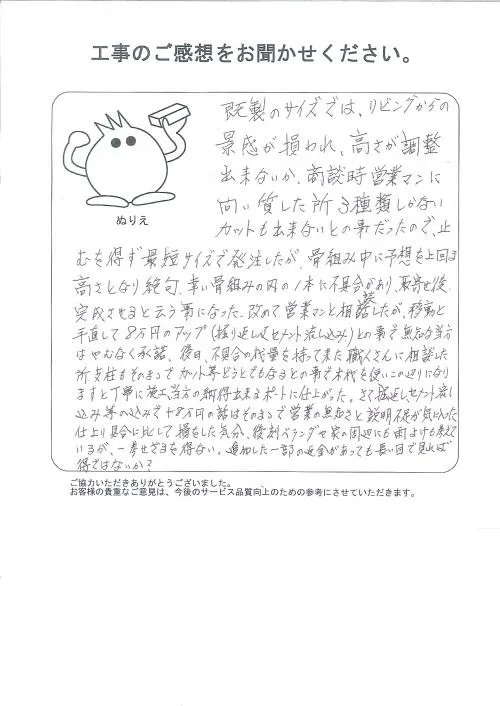 工事のご感想をお聞かせください。
ぬりえ
既製のサイズでは、リビングからの
景感が損われ、高さが調整
出来ないか、商談時営業マンに
問い質した所3種類しかない
カットも出来ないとの事だったので、止
むを得ず最短サイズで発注したが、骨組み中に予想を上回る
高さとなり絶句、幸い骨組みの内の1本に不具合があり、取寄せ後
完成させると云う事になった。改めて営業マンと相談したが、移動と
手直しで8万円のアップ(掘り返しセメント流し込み)との事で無知な当方
はやむなく承諾、後日、不具合の代量を持って来た職人さんに相談した
所支柱もそのままでカット等どうとでもなるとの事で木代を使いこの辺りになり
ますと丁寧に施工当方の納得出来るポートに仕上がった。さて掘返しセメント流し
込み等の込みで+8万円の話はそのままで営業の無知さと説明不足が気になった
仕上り具合に比して損をした気分、後刻ベランダや家の周辺にも雨よけも考えて
いるが、一考せざるを得ない。追加した一部の返金があっても長い目で見れば
得ではないか?
ご協力いただきありがとうございました。
お客様の貴重なご意見は、今後のサービス品質向上のための参考にさせていただきます。